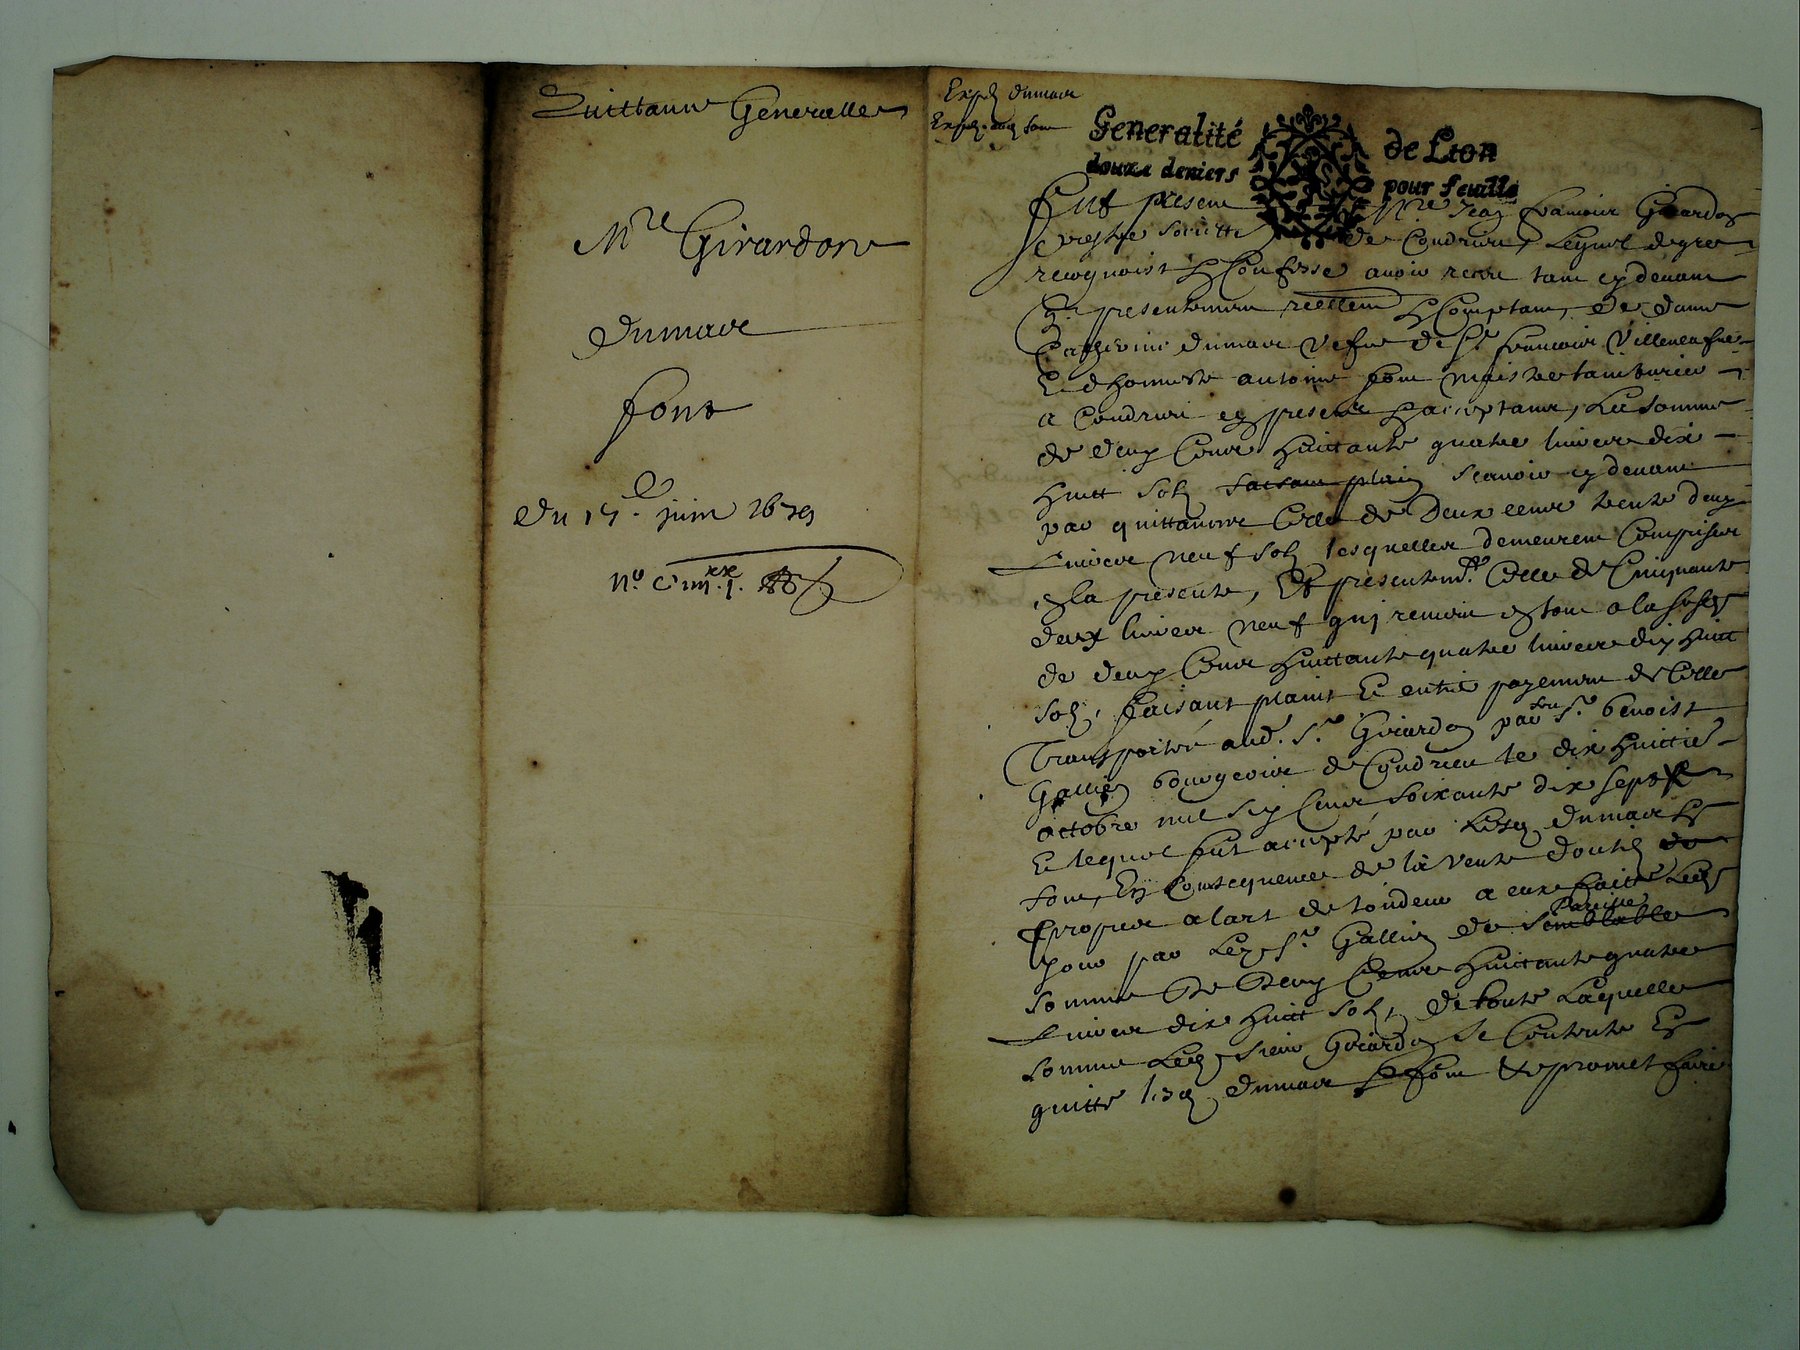 Quittance Generalle
Mre Girardon
Dumare
font
Du 17e juin 1679
No. C iiijxx j.
Expe dumare
Expe. aud font
Generalité de Lion
douze deniers pour feuille
Fut present Mre Jean francois Girardon
de Condrieu, Lequel de gre
recognoist & Confesse avoir receu tant cy devant
que presentement reellemt & Comptant, de dame
Catherine dumare vefve de Sr. francois Villeneufve
Et dhonneste antoine font maistre
a Condrieu cy present & acceptant, La somme
de deux Cent huittante quatre livres dix
huit solz scavoir cy devant
par quittance Celle de Deux cent trente deux
Livres neuf solz lesquelles demeurent Comprises
en la presente, Et presentemt. Celle de Cinquante
deux livres neuf qui revient en tout a la susd
de deux Cent huittante quatre livres dix huit
solz, faisant plain Et entier payement de Celle
Transportée aud. Sr. Girardon par feu Sr. benoist
Gallien bourgeois de Condrieu le dix huittie
octobre mil six Cent soixante dix sept
Et lequel fut accepté par Lesd dumare Et
font, En Consequence de la vente doutilz de
propres a lart de tondeur a eux faitte Led
jour par Led Sr. Gallien de semblable
Pareille
somme De Deux Cent huittante quatre
Livres dix huit solz, de toute Laquelle
somme Led sieur Girardon se Contente Et
quitte lesd dumare & font & promet faire